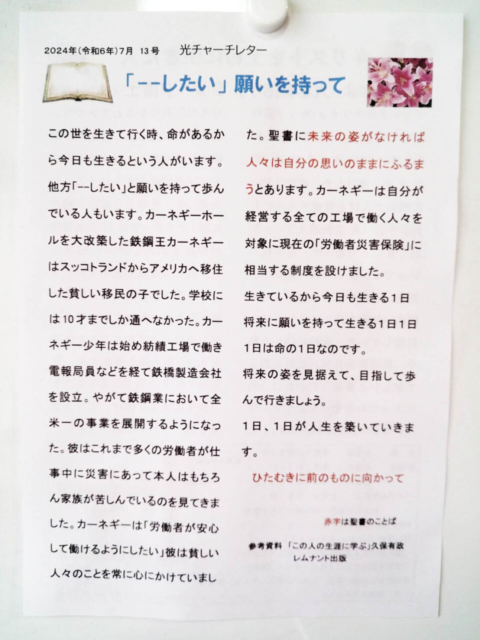 2024年(令和6年)7月 13号 光チャーチレター
「−−したい」願いを持って
この世を生きて行く時、命があるか
ら今日も生きるという人がいます。
他方「−−したい」と願いを持って歩ん
でいる人もいます。カーネギーホー
ルを大改築した鉄鋼王カーネギー
はスッコトランドからアメリカへ移住
した貧しい移民の子でした。学校に
は10才までしか通へなかった。カー
ネギー少年は始め紡績工場で働き
電報局員などを経て鉄橋製造会社
を設立。やがて鉄鋼業において全
米一の事業を展開するようになっ
た。彼はこれまで多くの労働者が仕
事中に災害にあって本人はもちろ
ん家族が苦しんでいるのを見てきま
した。カーネギーは「労働者が安心
して働けるようにしたい」彼は貧しい
人々のことを常に心にかけていまし
た。聖書に未来の姿がなければ
人々は自分の思いのままにふるま
うとあります。カーネギーは自分が
経営する全ての工場で働く人々を
対象に現在の「労働者災害保険」に
相当する制度を設けました。
生きているから今日も生きる1日
将来に願いを持って生きる1日1日
1日は命の1日なのです。
将来の姿を見据えて、目指して歩
んで行きましょう。
1日、1日が人生を築いていきま
す。
ひたむきに前のものに向かって
赤字は聖書のことば
参考資料 「この人の生涯に学ぶ」久保有政
レムナント出版